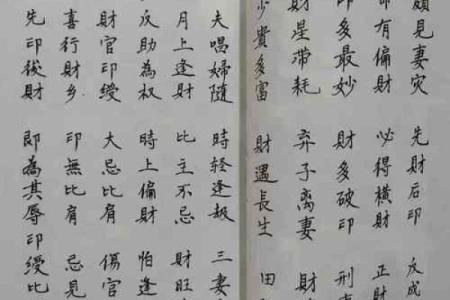 見妻灾 先財后印 反成
有偏財 必得橫財 正財
印多最妙 財多破印 刑
財星帶耗 弃子离妻 財
少貴多富 財遇長生 田
夫唱婦隨 時轻逢 三妻
月上逢財 比主不忌 財旺
反助為权 時上偏財 怕逢
財官印绶 大忌比肩 傷官
喜行財乡 印無比肩 忌見
先印後財 即為其辱 印绶比